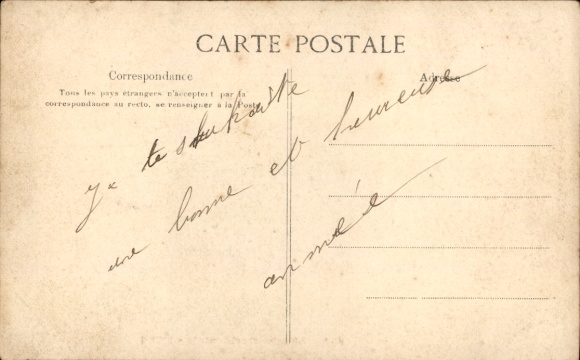 CARTE POSTALE
Correspondance
Tous les pays étrangers n'acceptent par la
correspondance au recto, se renseigner à la Poste
Adresse
Je te souhaite
une bonne et heureuse
année